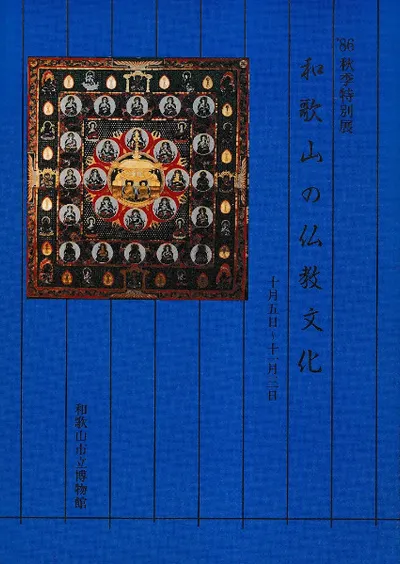 '86 秋季特別展
和歌山の仏教文化
十月五日~十一月三日
和歌山市立博物館